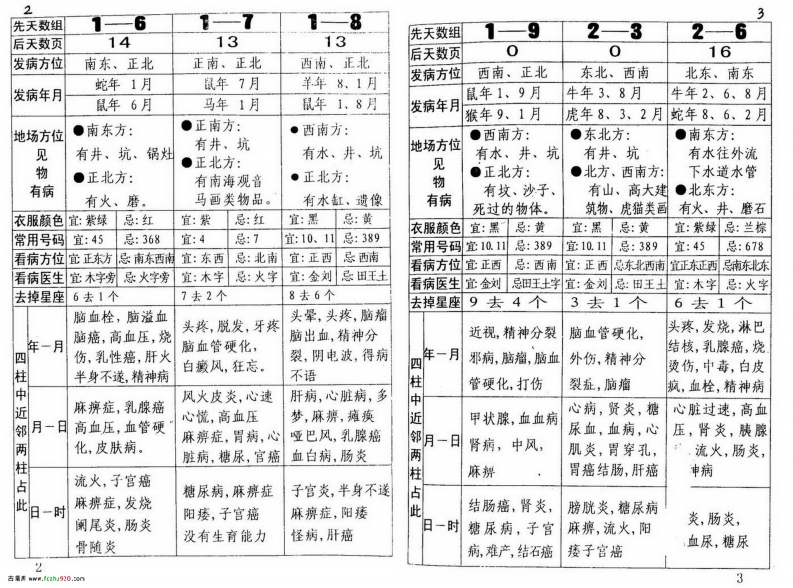 2
先天数组 1—6 1—7 1—8
后天数页 14 13 13
发病方位 南东、正北 正南、正北 西南、正北
发病年月
蛇年 1月 鼠年 7月 羊年 8、1月
鼠年 6月 马年 1月 鼠年 1、8月
地场方位见物有病
●南东方:
有井、坑、锅灶
●正北方:
有火、磨。
●正南方:
有井、坑
●正北方:
有南海观音
马画类物品。
●西南方:
有水、井、坑
●正北方:
有水缸、遗像
衣服颜色 宜:紫绿 忌:红 宜:紫 忌:红 宜:黑 忌:黄
常用号码 宜:45 忌:368 宜:4 忌:7 宜:10、11 忌:389
看病方位 宜:正东方 忌:南东西南 宜:东西 忌:北南 宜:正西 忌:西南
看病医生 宜:木字旁 忌:火字旁 宜:木字 忌:火字 宜:金刘 忌:田王土
去掉星座 6去1个 7去2个 8去6个
四柱中近邻两柱占此
年—月
脑血栓,脑溢血
脑癌,高血压,烧
伤,乳性癌,肝火
半身不遂,精神病
头疼,脱发,牙疼
脑血管硬化,
白癜风,狂忘。
头晕,头疼,脑瘤
脑出血,精神分
裂,阴电波,得病
不语
月—日
麻痹症,乳腺癌
高血压,血管硬
化,皮肤病。
风火皮炎,心速
心慌,高血压
麻痹症,胃病,心
脏病,糖尿,宫癌
肝病,心脏病,多
梦,麻痹,瘫痪
哑巴风,乳腺癌
血白病,肠炎
日—时
流火,子宫癌
麻痹症,发烧
阑尾炎,肠炎
骨随炎
糖尿病,麻痹症
阳痿,子宫癌
没有生育能力
子宫炎,半身不遂
麻痹症,阳痿
怪病,肝癌
2
古籍库 www.fozhu920.com
3
先天数组 1—9 2—3 2—6
后天数页 0 0 16
发病方位 西南、正北 东北、西南 北东、南东
发病年月
鼠年1、9月 牛年3、8月 牛年2、6、8月
猴年9、1月 虎年8、3、2月 蛇年8、6、2月
地场方位见物有病
●西南方:
有水、井、坑
●正北方:
有坟、沙子、
死过的物体。
●东北方:
有井、坑
●北方、西南方:
有山、高大建
筑物、虎猫类画
●南东方:
有水往外流
下水道水管
●北东方:
有火、井、磨石
衣服颜色 宜:黑 忌:黄 宜:黑 忌:黄 宜:紫绿 忌:兰棕
常用号码 宜:10.11 忌:389 宜:10.11 忌:389 宜:45 忌:678
看病方位 宜:正西 忌:西南 宜:正西 忌东北西南 宜正东正西 忌南东北东
看病医生 宜:金刘 忌田王土字 宜:金刘 忌:田王土 宜:木字 忌:火字
去掉星座 9去4个 3去1个 6去1个
四柱中近邻两柱占此
年—月
近视,精神分裂
邪病,脑瘤,脑血
管硬化,打伤
脑血管硬化,
外伤,精神分
裂症,脑瘤
头疼,发烧,淋巴
结核,乳腺癌,烧
烫伤,中毒,白皮
疯,血栓,精神病
月—日
甲状腺,血血病
肾病,中风,
麻痹
心病,肾炎,糖
尿血,血病,心
肌炎,胃穿孔,
胃癌结肠,肝癌
心脏过速,高血
压,肾炎,胰腺
流火,肠炎,
神病
日—时
结肠癌,肾炎,
糖尿病,子宫
病,难产,结石癌
膀胱炎,糖尿病
麻痹,流火,阳
痿子宫癌
炎,肠炎,
血尿,糖尿
3